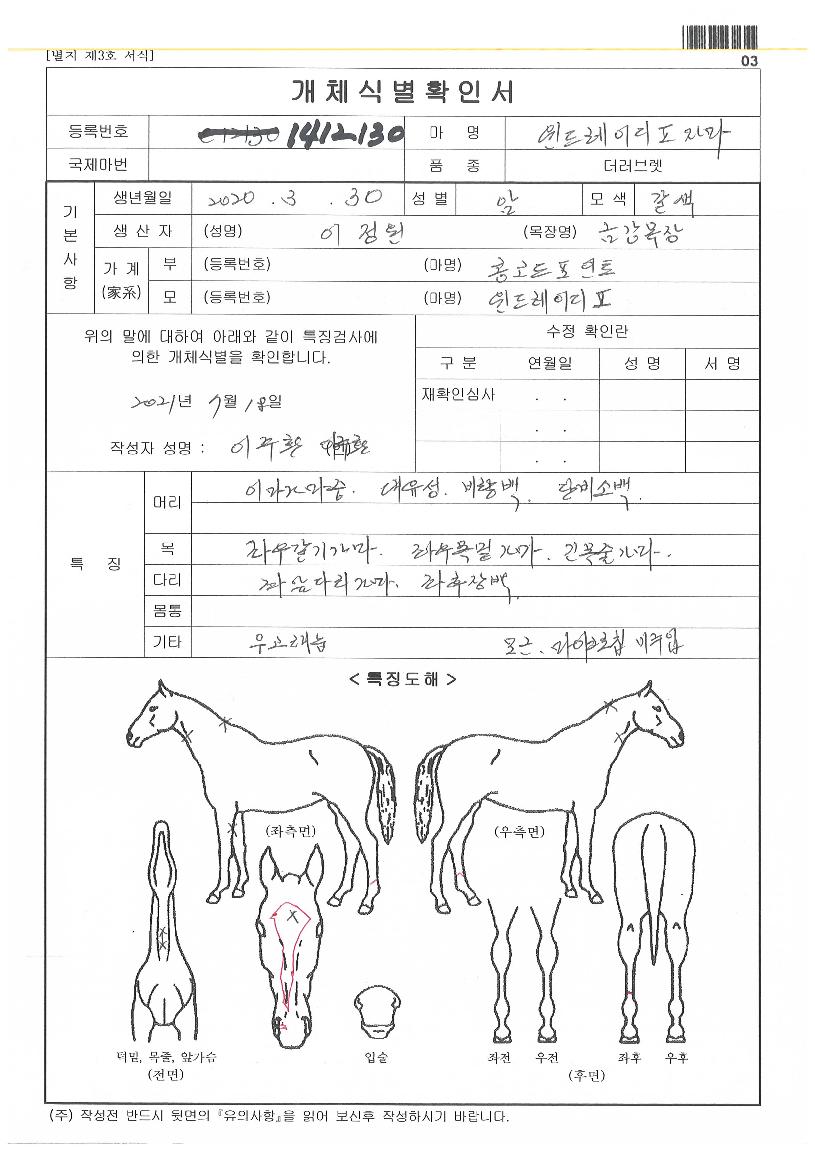 [별지 제3호 서식]
03
개체식별확인서
등록번호 1412130 마 명 윈드레이디포자마
국제마번 품 종 더러브렛
기본사항
생년월일 2020 . 3 . 30 성 별 암 모 색 갈색
생 산 자 (성명) 이정원 (목장명) 금강목장
가 계 (家系) 부 (등록번호) (마명) 콩코드포인트
모 (등록번호) (마명) 윈드레이디포
위의 말에 대하여 아래와 같이 특징검사에
의한 개체식별을 확인합니다.
2021년 7월 18일
작성자 성명 :
수정 확인란
구 분 연월일 성 명 서 명
재확인심사 . .
. .
. .
특 징
머리 이마가마중. 대유성. 비량백. 단비소백.
목 좌우갈기가마. 좌우목밑가마. 긴목줄가마.
다리 좌앞다리가마. 좌후장백.
몸통
기타 모근. 마이크로칩 미주입
< 특징도해 >
(좌측면) (우측면)
턱밑, 목줄, 앞가슴
(전면)
입술
좌전 우전 좌후 우후
(후면)
(주) 작성전 반드시 뒷면의 『유의사항』을 읽어 보신후 작성하시기 바랍니다.